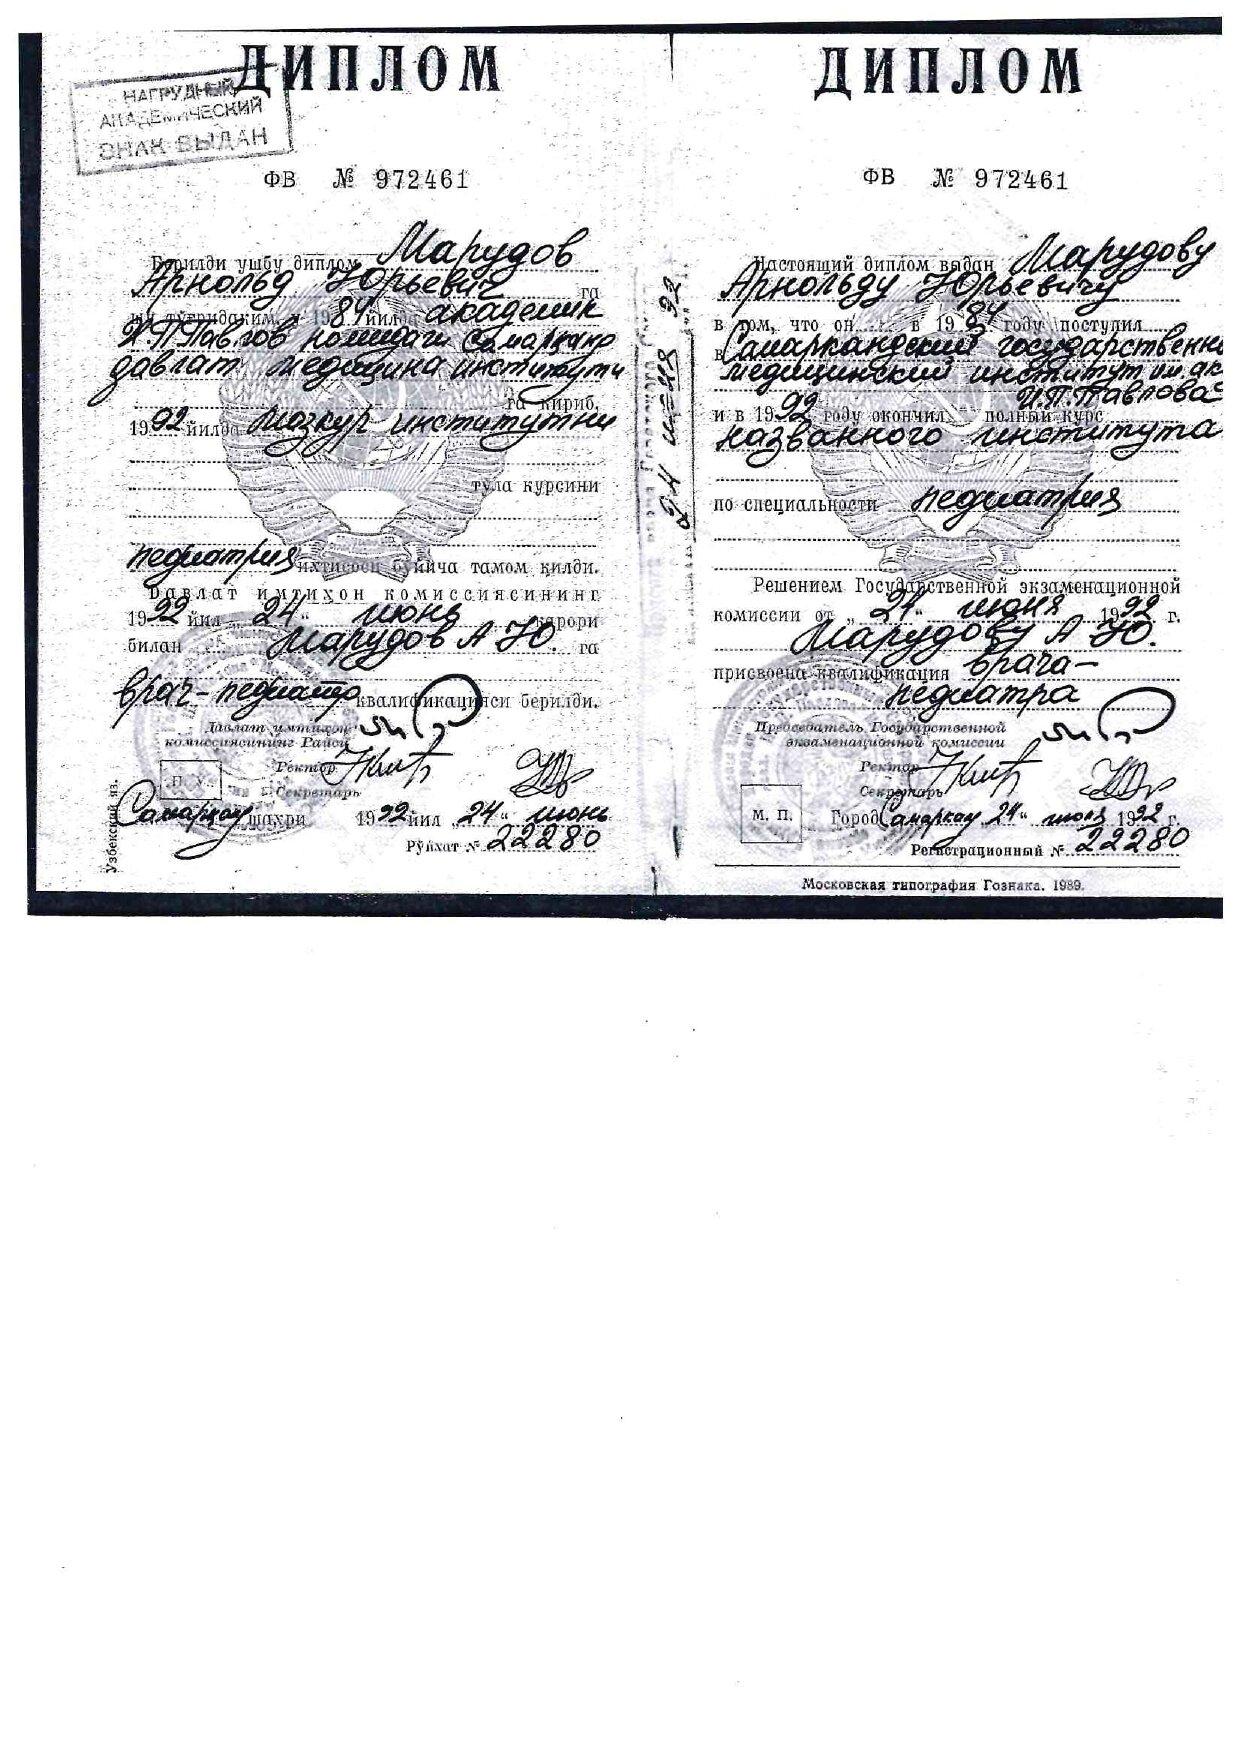 ДИПЛОМ
НАГРУДНЫЙ
АКАДЕМИЧЕСКИЙ
ЗНАК ВЫДАН
ФВ № 972461
Берилди ушбу диплом Марудов
Арнольд Юрьевич га
шу тўғридаким, у 1984 йилда академик
И.П.Павлов номидаги Самарқанд
давлат медицина институти
га кириб,
1992 йилда мазкур институтни
тўла курсини
педиатрия ихтисоси бўйича тамом қилди.
Давлат имтиҳон комиссиясининг
1992 йил „24“ июнь қарори
билан Марудов А Ю. га
врач-педиатр квалификацияси берилди.
Давлат имтиҳон
комиссиясининг Раиси
Ректор
П. У.
Секретарь
Самарқанд шаҳри 1992 йил „24“ июнь
Рўйхат № 22280
Узбекский яз.
24 июня 92
ДИПЛОМ
ФВ № 972461
Настоящий диплом выдан Марудову
Арнольду Юрьевичу
в том, что он в 1984 году поступил
в Самаркандский государственн
медицинский институт им. ак
И.П.Павлова
и в 1992 году окончил полный курс
названного института
по специальности педиатрия
Решением Государственной экзаменационной
комиссии от „24“ июня 1992 г.
Марудову А Ю.
присвоена квалификация врача-
педиатра
Председатель Государственной
экзаменационной комиссии
Ректор
Секретарь
М. П.
Город Самарканд „24“ июня 1992 г.
Регистрационный № 22280
Московская типография Гознака. 1989.